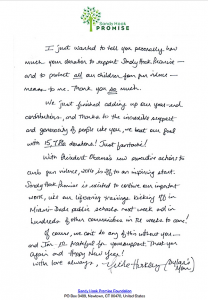 Sandy Hook
PROMISE
I just wanted to tell you personally how
much your donation to support Sandy Hook Promise —
and to protect all our children from gun violence —
means to me. Thank you so much.
We just finished adding up our year-end
contributions, and thanks to the incredible support
and generosity of people like you, we beat our goal
with 15,712 donations! Just fantastic!
With President Obama's new executive actions to
curb gun violence, 2016 is off to an inspiring start.
Sandy Hook Promise is excited to continue our important
work, like our upcoming trainings kicking off in
Miami-Dade public schools next week and in
hundreds of other communities in the weeks to come!
Of course, we can't do any of this without you —
and I'm so grateful for your support. Thank you
again and Happy New Year!
With love always, Nicole Hockley
(Dylan's Mom)
Sandy Hook Promise Foundation
PO Box 3489, Newtown, CT 06470, United States